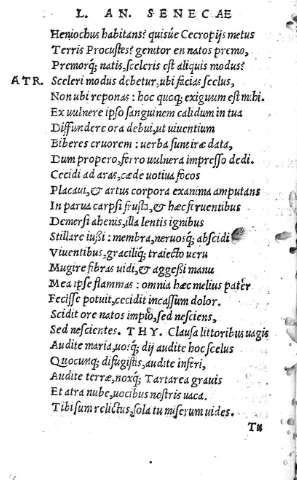 L. AN. SENECAE
Heniochus habitans? quisúe Cecropijs metus
Terris Procustes? genitor en natos premo,
Premorq; natis. sceleris est aliquis modus?
ATR. Sceleri modus debetur, ubi facias scelus,
Non ubi reponas: hoc quoq; exiguum est mihi.
Ex uulnere ipso sanguinem calidum in tua
Diffundere ora debui, ut uiuentium
Biberes cruorem: uerba sunt iræ data,
Dum propero, ferro uulnera impresso dedi.
Cecidi ad aras, cæde uotiua focos
Placaui, & artus corpora exanima amputans
In parua carpsi frusta, & hæc feruentibus
Demersi ahenis, illa lentis ignibus
Stillare iussi: membra, neruosq; abscidi
Viuentibus, graciliq; traiecto ueru
Mugire fibras uidi, & aggessi manu
Mea ipse flammas: omnia hæc melius pater
Fecisse potuit, cecidit incassum dolor.
Scidit ore natos impio, sed nesciens,
Sed nescientes. THY. Clausa littoribus uagis
Audite maria, uosq; dij audite hoc scelus
Quocunq; diffugistis, audite inferi,
Audite terræ, noxq; Tartarea grauis
Et atra nube, uocibus nostris uaca.
Tibi sum relictus, sola tu miserum uides.
Tu